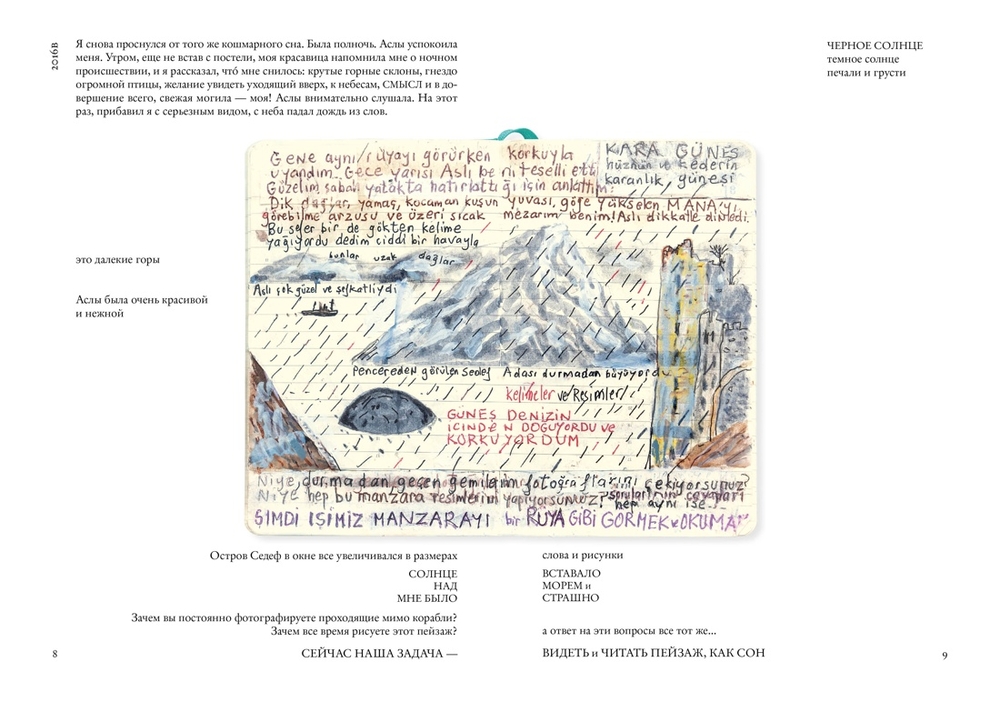 2016В
Я снова проснулся от того же кошмарного сна. Была полночь. Аслы успокоила
меня. Утром, еще не встав с постели, моя красавица напомнила мне о ночном
происшествии, и я рассказал, что́ мне снилось: крутые горные склоны, гнездо
огромной птицы, желание увидеть уходящий вверх, к небесам, СМЫСЛ и в до-
вершение всего, свежая могила — моя! Аслы внимательно слушала. На этот
раз, прибавил я с серьезным видом, с неба падал дождь из слов.
ЧЕРНОЕ СОЛНЦЕ
темное солнце
печали и грусти
Gene aynı rüyayı görürken korkuyla
uyandım. Gece yarısı Aslı beni teselli etti
Güzelim sabah yatakta hatırlattığı için anlattım:
KARA GÜNEŞ
hüznün ve kederin
karanlık, güneşi
Dik dağlar, yamaç, kocaman kuşun yuvası, göğe yükselen MANA'yı
görebilme arzusu ve üzeri sıcak mezarım benim! Aslı dikkatle dinledi.
Bu sefer bir de gökten kelime
yağıyordu dedim ciddi bir havayla
bunlar uzak dağlar
Aslı çok güzel ve şefkatliydi
это далекие горы
Аслы была очень красивой
и нежной
Pencereden görülen Sedef Adası durmadan büyüyordu
kelimeler ve Resimler
GÜNEŞ DENİZİN
İÇİNDEN DOĞUYORDU ve
KORKUYORDUM
Niye durmadan geçen gemilerin fotoğraflarını çekiyorsunuz?
Niye hep bu manzara resimlerini yapıyorsunuz? soruların cevapları
hep aynı ise...
ŞİMDİ İŞİMİZ MANZARAYI bir RÜYA GİBİ GÖRMEK ve OKUMAK
Остров Седеф в окне все увеличивался в размерах
СОЛНЦЕ
НАД
МНЕ БЫЛО
Зачем вы постоянно фотографируете проходящие мимо корабли?
Зачем все время рисуете этот пейзаж?
СЕЙЧАС НАША ЗАДАЧА —
слова и рисунки
ВСТАВАЛО
МОРЕМ и
СТРАШНО
а ответ на эти вопросы все тот же...
ВИДЕТЬ и ЧИТАТЬ ПЕЙЗАЖ, КАК СОН
8
9